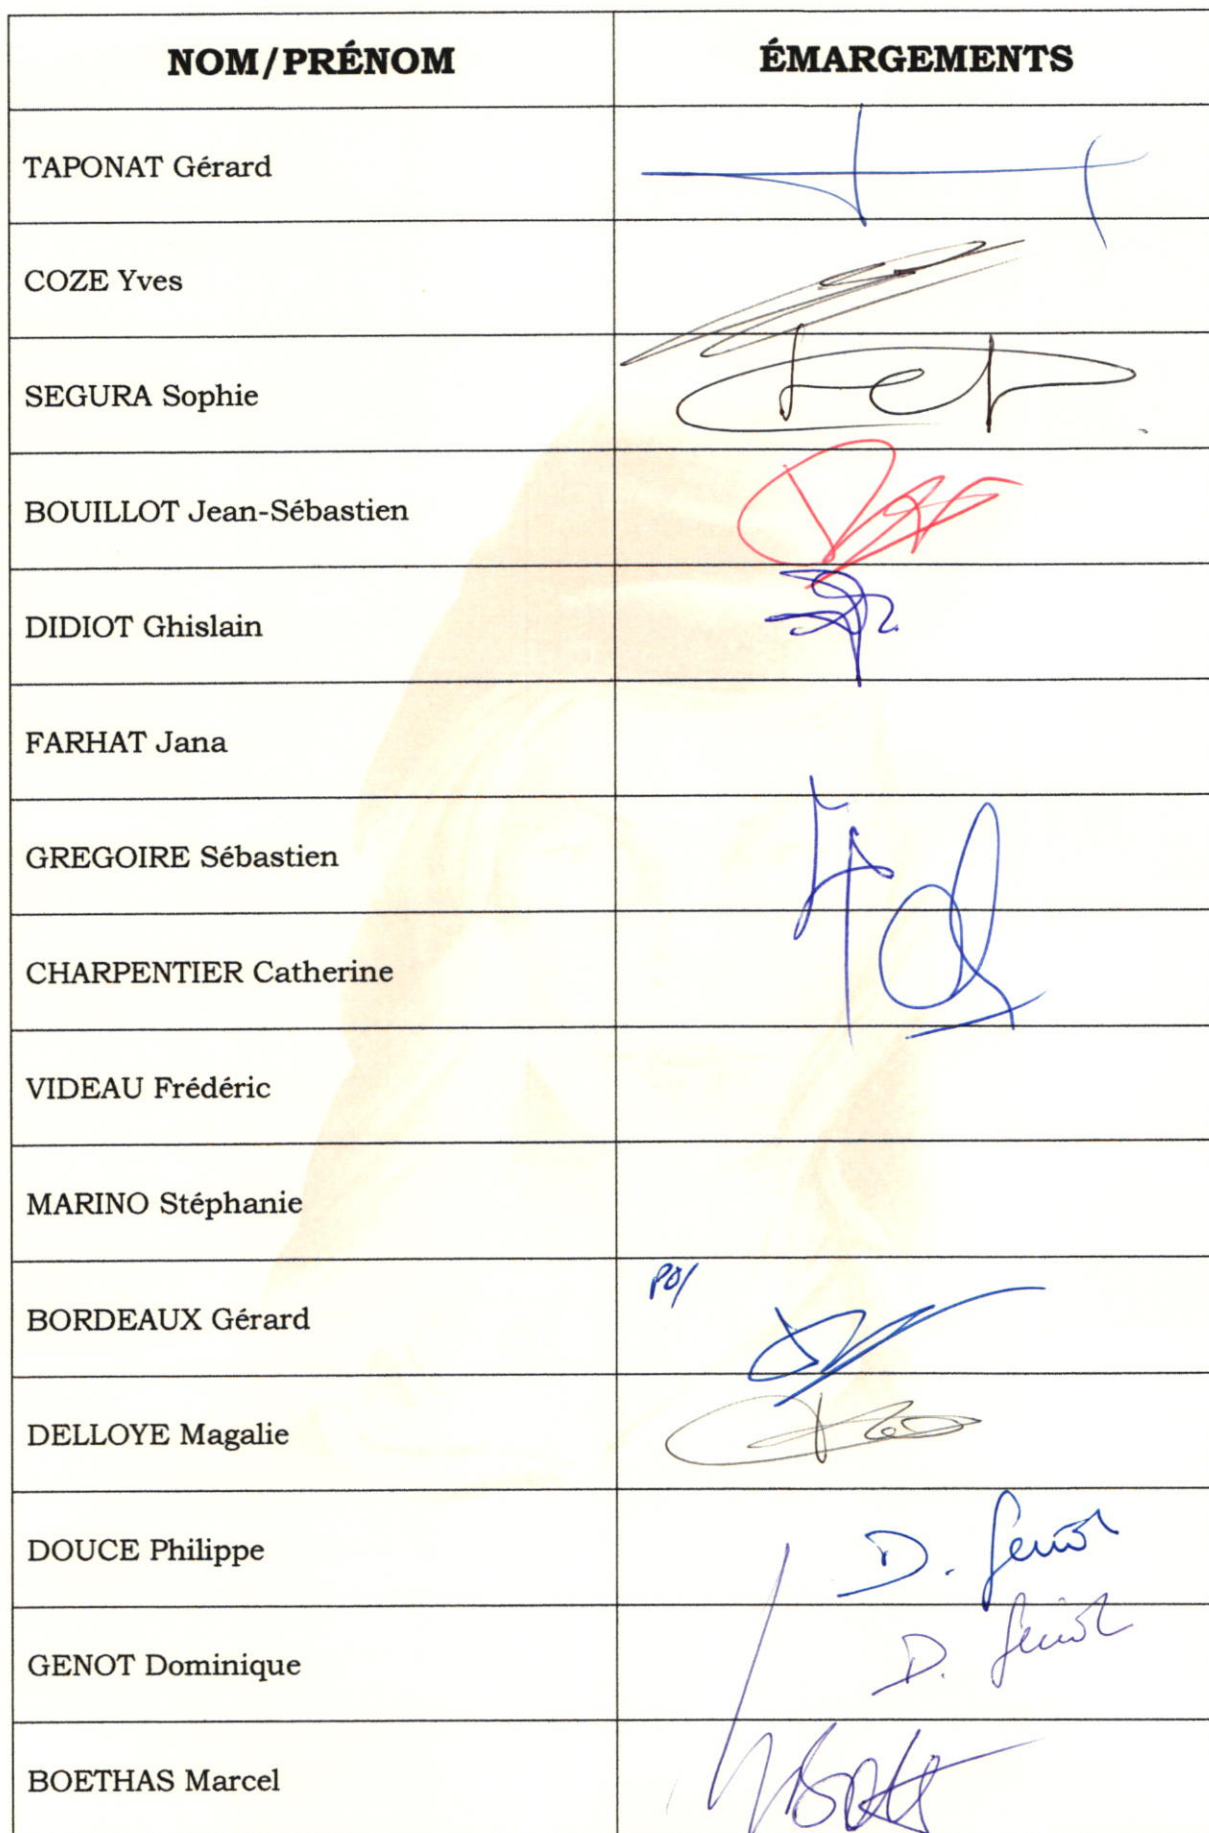 NOM/PRÉNOM ÉMARGEMENTS
TAPONAT Gérard
COZE Yves
SEGURA Sophie
BOUILLOT Jean-Sébastien
DIDIOT Ghislain
FARHAT Jana
GREGOIRE Sébastien
CHARPENTIER Catherine
VIDEAU Frédéric
MARINO Stéphanie
BORDEAUX Gérard
DELLOYE Magalie
DOUCE Philippe D. Genot
GENOT Dominique D. Genot
BOETHAS Marcel